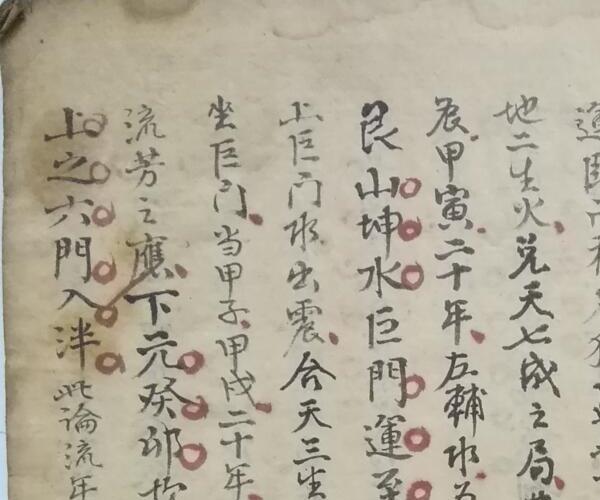 運
地二生火兌天七成之局
辰甲寅二十年左輔水
艮山坤水巨門運至
上巨門水出震合天三生
坐巨门当甲子甲戌二十年
流芳之應下元癸卯
上之六門入泮此論流年